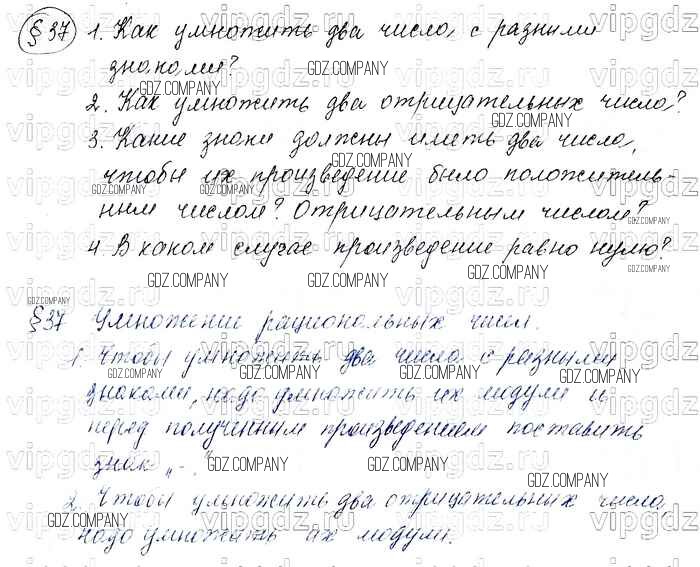 § 37 1. Как умножить два числа с разными
знаками?
2. Как умножить два отрицательных числа?
3. Какие знаки должны иметь два числа,
чтобы их произведение было положитель-
ным числом? Отрицательным числом?
4. В каком случае произведение равно нулю?
§ 37 Умножение рациональных чисел.
1. Чтобы умножить два числа с разными
знаками, надо умножить их модули и
перед полученным произведением поставить
знак „-“.
2. Чтобы умножить два отрицательных числа,
надо умножить их модули.